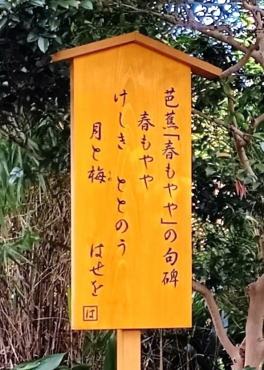 芭蕉「春もやや」の句碑
春もやや
けしき ととのう
月と梅
はせを
は